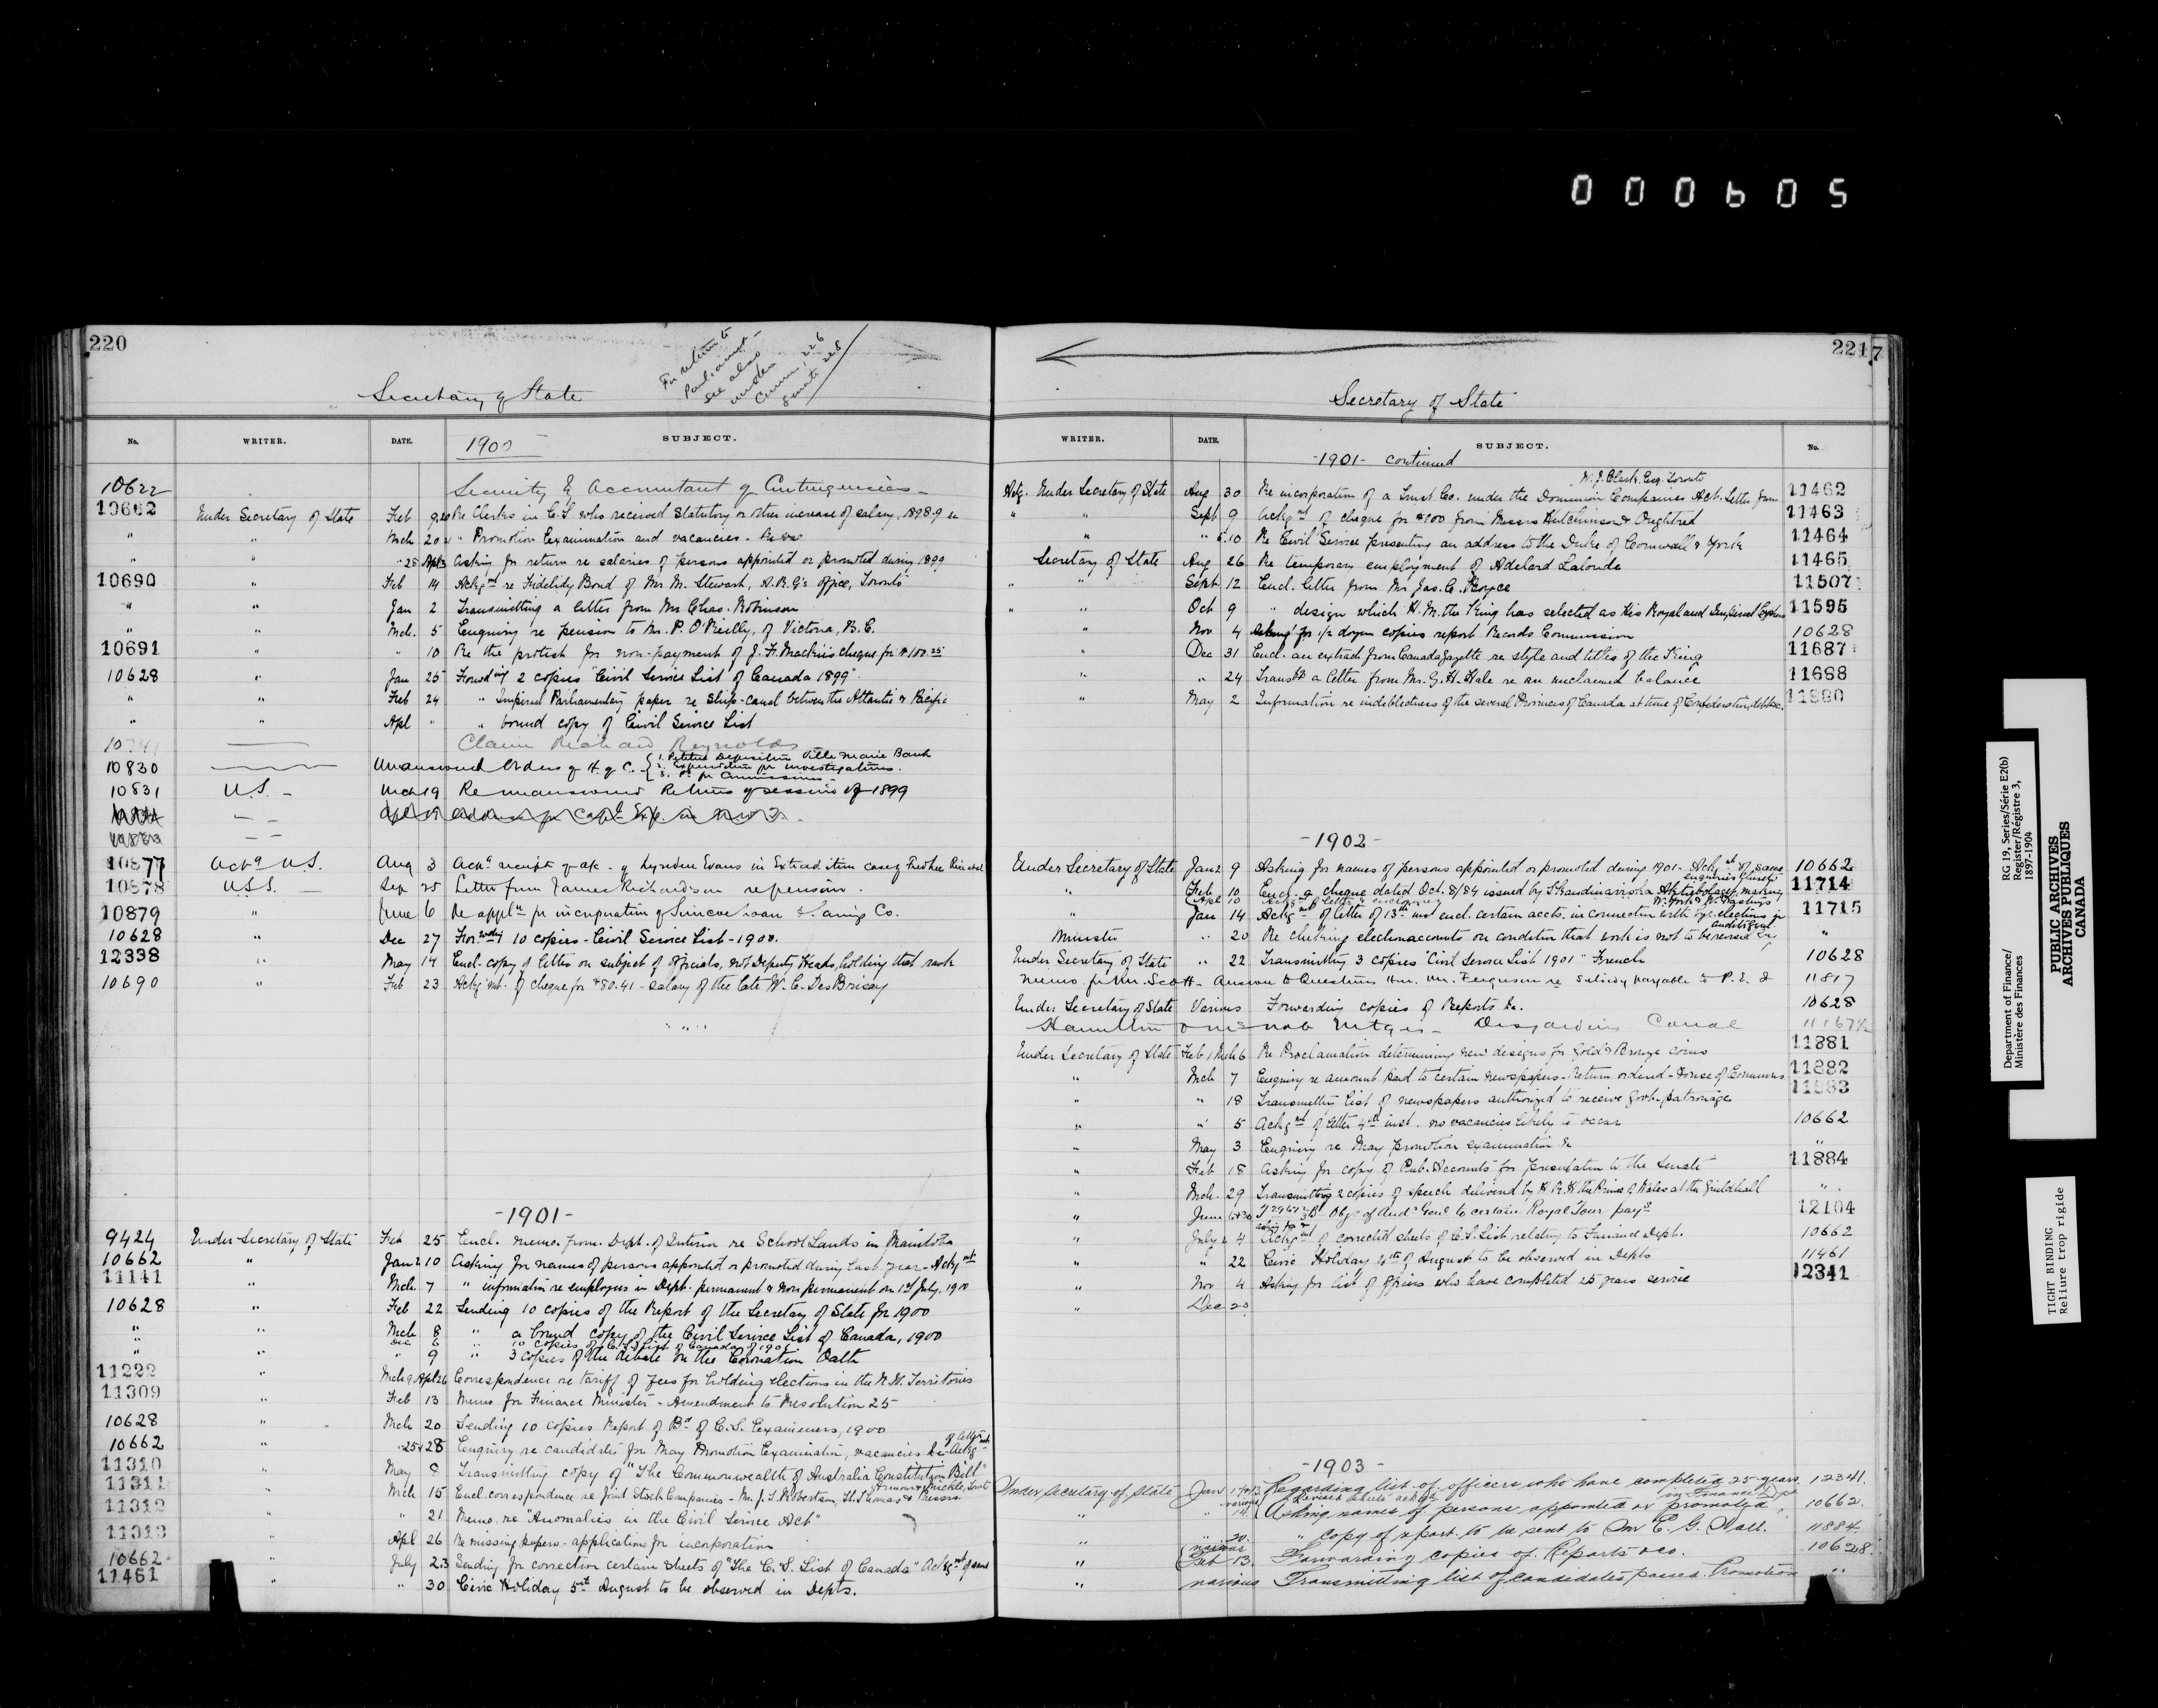 000605
220
For return to
Parliament
see also
under
Commons 226
Senate 228
Secretary of State
No. WRITER. DATE. SUBJECT.
1900
10622 Security by Accountant of Contingencies
10662 Under Secretary of State Feb 9, 20 Re Clerks in C.S. who received Statutory or other increase of salary, 1898-9
" " Mch 20 " Promotion Examination and vacancies
" " " 28 Apl 3 Asking for return re salaries of persons appointed or promoted during 1899
10690 " Feb 14 Ackgmt re Fidelity Bond of Mr M. Stewart, A.R.G's Office, Toronto
" " Jan 2 Transmitting a letter from Mr Chas. Robinson
" " Mch. 5 Enquiry re pension to Mr. P. O'Reilly, of Victoria, B.C.
10691 " " 10 Re the protest for non-payment of J. F. Mackie's cheque for $100.25
10628 " Jan 25 Forwding 2 copies "Civil Service List of Canada 1899"
" " Feb 24 " Imperial Parliamentary paper re Ship-canal between the Atlantic & Pacific
" " Apl " " bound copy of Civil Service List
Claim Richard Reynolds
10830 Unanswered Orders of H. of C. { 1. Petition Depositors Ville Marie Bank
2. Expenditure for investigations.
3. Do for Commissions
10831 U.S. - Mch 19 Re unanswered Returns of session of 1899
10877 Actg U.S. Aug 3 Ackg receipt of a/c
10878 U.S.S. Sep 25 Letter from James Richardson re pension.
10879 " June 6 Re appln for incorporation of Simcoe Loan & Saving Co.
10628 " Dec 27 Forwdng 10 copies - Civil Service List - 1900.
12338 " May 14 Encl. copy of letter on subject of officials, not Deputy Heads, holding that rank
10690 " Feb 23 Ackgmt. of cheque for $80.41 - salary of the late W. C. DesBrisay
-1901-
9424 Under Secretary of State Feb 25 Encl. memo. from Dept. of Interior re School Lands in Manitoba
10662 " Jan 2 10 Asking for names of persons appointed or promoted during last year - Ackgmt
11141 " Mch. 7 " information re employees in Dept. permanent & non permanent on 1st July, 1900
10628 " Feb 22 Sending 10 copies of the Report of the Secretary of State for 1900
" " Mch 8 " a bound copy of the Civil Service List of Canada, 1900
" " Dec 6 " 10 copies of C.S. List of Canada of 1901
" " " 9 " 3 copies of the debate on the Coronation Oath
11222 " Mch 9 Apl 26 Correspondence re tariff of fees for holding elections in the N.W. Territories
11309 " Feb 13 Memo for Finance Minister - Amendment to Resolution 25
10628 " Mch 20 Sending 10 copies Report of Bd of C.S. Examiners, 1900
10662 " " 25 & 28 Enquiry re candidates for May Promotion Examination, vacancies &c - Ackg of letter
11310 " May 8 Transmitting copy of "The Commonwealth of Australia Constitution Bill"
11311 " Mch 15 Encl. correspondence re Joint Stock Companies - Mr. J. S. Robertson, St. Thomas & Messrs
11312 " " 21 Memo. re "Anomalies in the Civil Service Act"
11313 " Apl 26 Re missing papers - application for incorporation
10662 " July 23 Sending for correction certain sheets of "The C. S. List of Canada" Ackgmt of same
11461 " " 30 Civic Holiday 5th August to be observed in Depts.
2217
Secretary of State
WRITER. DATE. SUBJECT. No.
-1901- continued
W. J. Clark, Esq. Toronto
Actg. Under Secretary of State Aug 30 Re incorporation of a Trust Co. under the Dominion Companies Act. Letter from 11462
" " Sept 9 Ackgmt of cheque for $100 from Messrs Hutchinson & Oughtred 11463
" " 10 Re Civil Service presenting an address to the Duke of Cornwall & York 11464
Secretary of State Aug 26 Re temporary employment of Adelard Lalonde 11465
" " Sept 12 Encl. letter from Mr Jas. C. Royce 11507
" " Oct 9 " design which H.M. the King has selected as His Royal and Imperial Cypher 11595
" Nov 4 Asking for 1/2 dozen copies report Records Commission 10628
" Dec 31 Encl. an extract from Canada Gazette re style and titles of the King 11687
" " 24 Transtg a letter from Mr. G. H. Hale re an unclaimed balance 11688
" May 2 Information re indebtedness of the several Provinces of Canada at time of Confederation, debts &c. 11880
-1902-
Under Secretary of State Jan 2 9 Asking for names of persons appointed or promoted during 1901 - Ackgmt of same 10662
" Feb 10 Encl. a cheque dated Oct. 8/84 issued by Skandinaviska Aktiebolaget, making 11714
" Jan 14 Ackgmt of letter of 13th inst encl. certain accts. in connection with bye-elections in 11715
Minister " 20 Re checking election accounts on condition that work is not to be revised by Auditor Genl. "
Under Secretary of State " 22 Transmitting 3 copies "Civil Service List 1901" French 10628
Memo. for Mr. Scott - Answer to Questions Hon. Mr. Ferguson re Subsidy payable to P.E.I 11817
Under Secretary of State Various Forwarding copies of Reports &c. 10628
Hamilton Desjardins Canal
Under Secretary of State Feb 1 Mch 6 Re Proclamation determining new designs for Gold & Bronze coins 11881
" Mch 7 Enquiry re amount paid to certain newspapers - Return ordered - House of Commons 11882
" " 18 Transmittg list of newspapers authorized to receive Govt. patronage 11883
" " 5 Ackgmt of letter 4th inst. no vacancies likely to occur 10662
" May 3 Enquiry re May promotion examination &c "
" Feb 18 Asking for copy of Pub. Accounts for presentation to the Senate 11884
" Mch. 29 Transmitting 2 copies of speech delivered by H.R.H the Prince of Wales at the Guildhall "
" June Obj. of Audr Genl to certain Royal Tour payts 12104
" July 2 4 Ackgmt of corrected sheets of C.S. List relating to Finance Dept. 10662
" " 22 Civic Holiday 4th of August to be observed in Depts 11461
" Nov 4 Asking for list of officers who have completed 25 years service 12341
" Dec 23
-1903-
Under Secretary of State Jan Regarding list of officers who have completed 25 years in Finance Dpt 12341.
" " 14 Asking names of persons appointed or promoted 10662.
" " 20. " copy of report to be sent to Mr E. G. 11884
" Feb 13. Forwarding copies of Reports &co. 10628.
" various Transmitting list of candidates passed Promotion "
Department of Finance/
Ministère des Finances
RG 19, Series/Série E2(b)
Register/Régistre 3,
1897-1904
PUBLIC ARCHIVES
ARCHIVES PUBLIQUES
CANADA
TIGHT BINDING
Reliure trop rigide